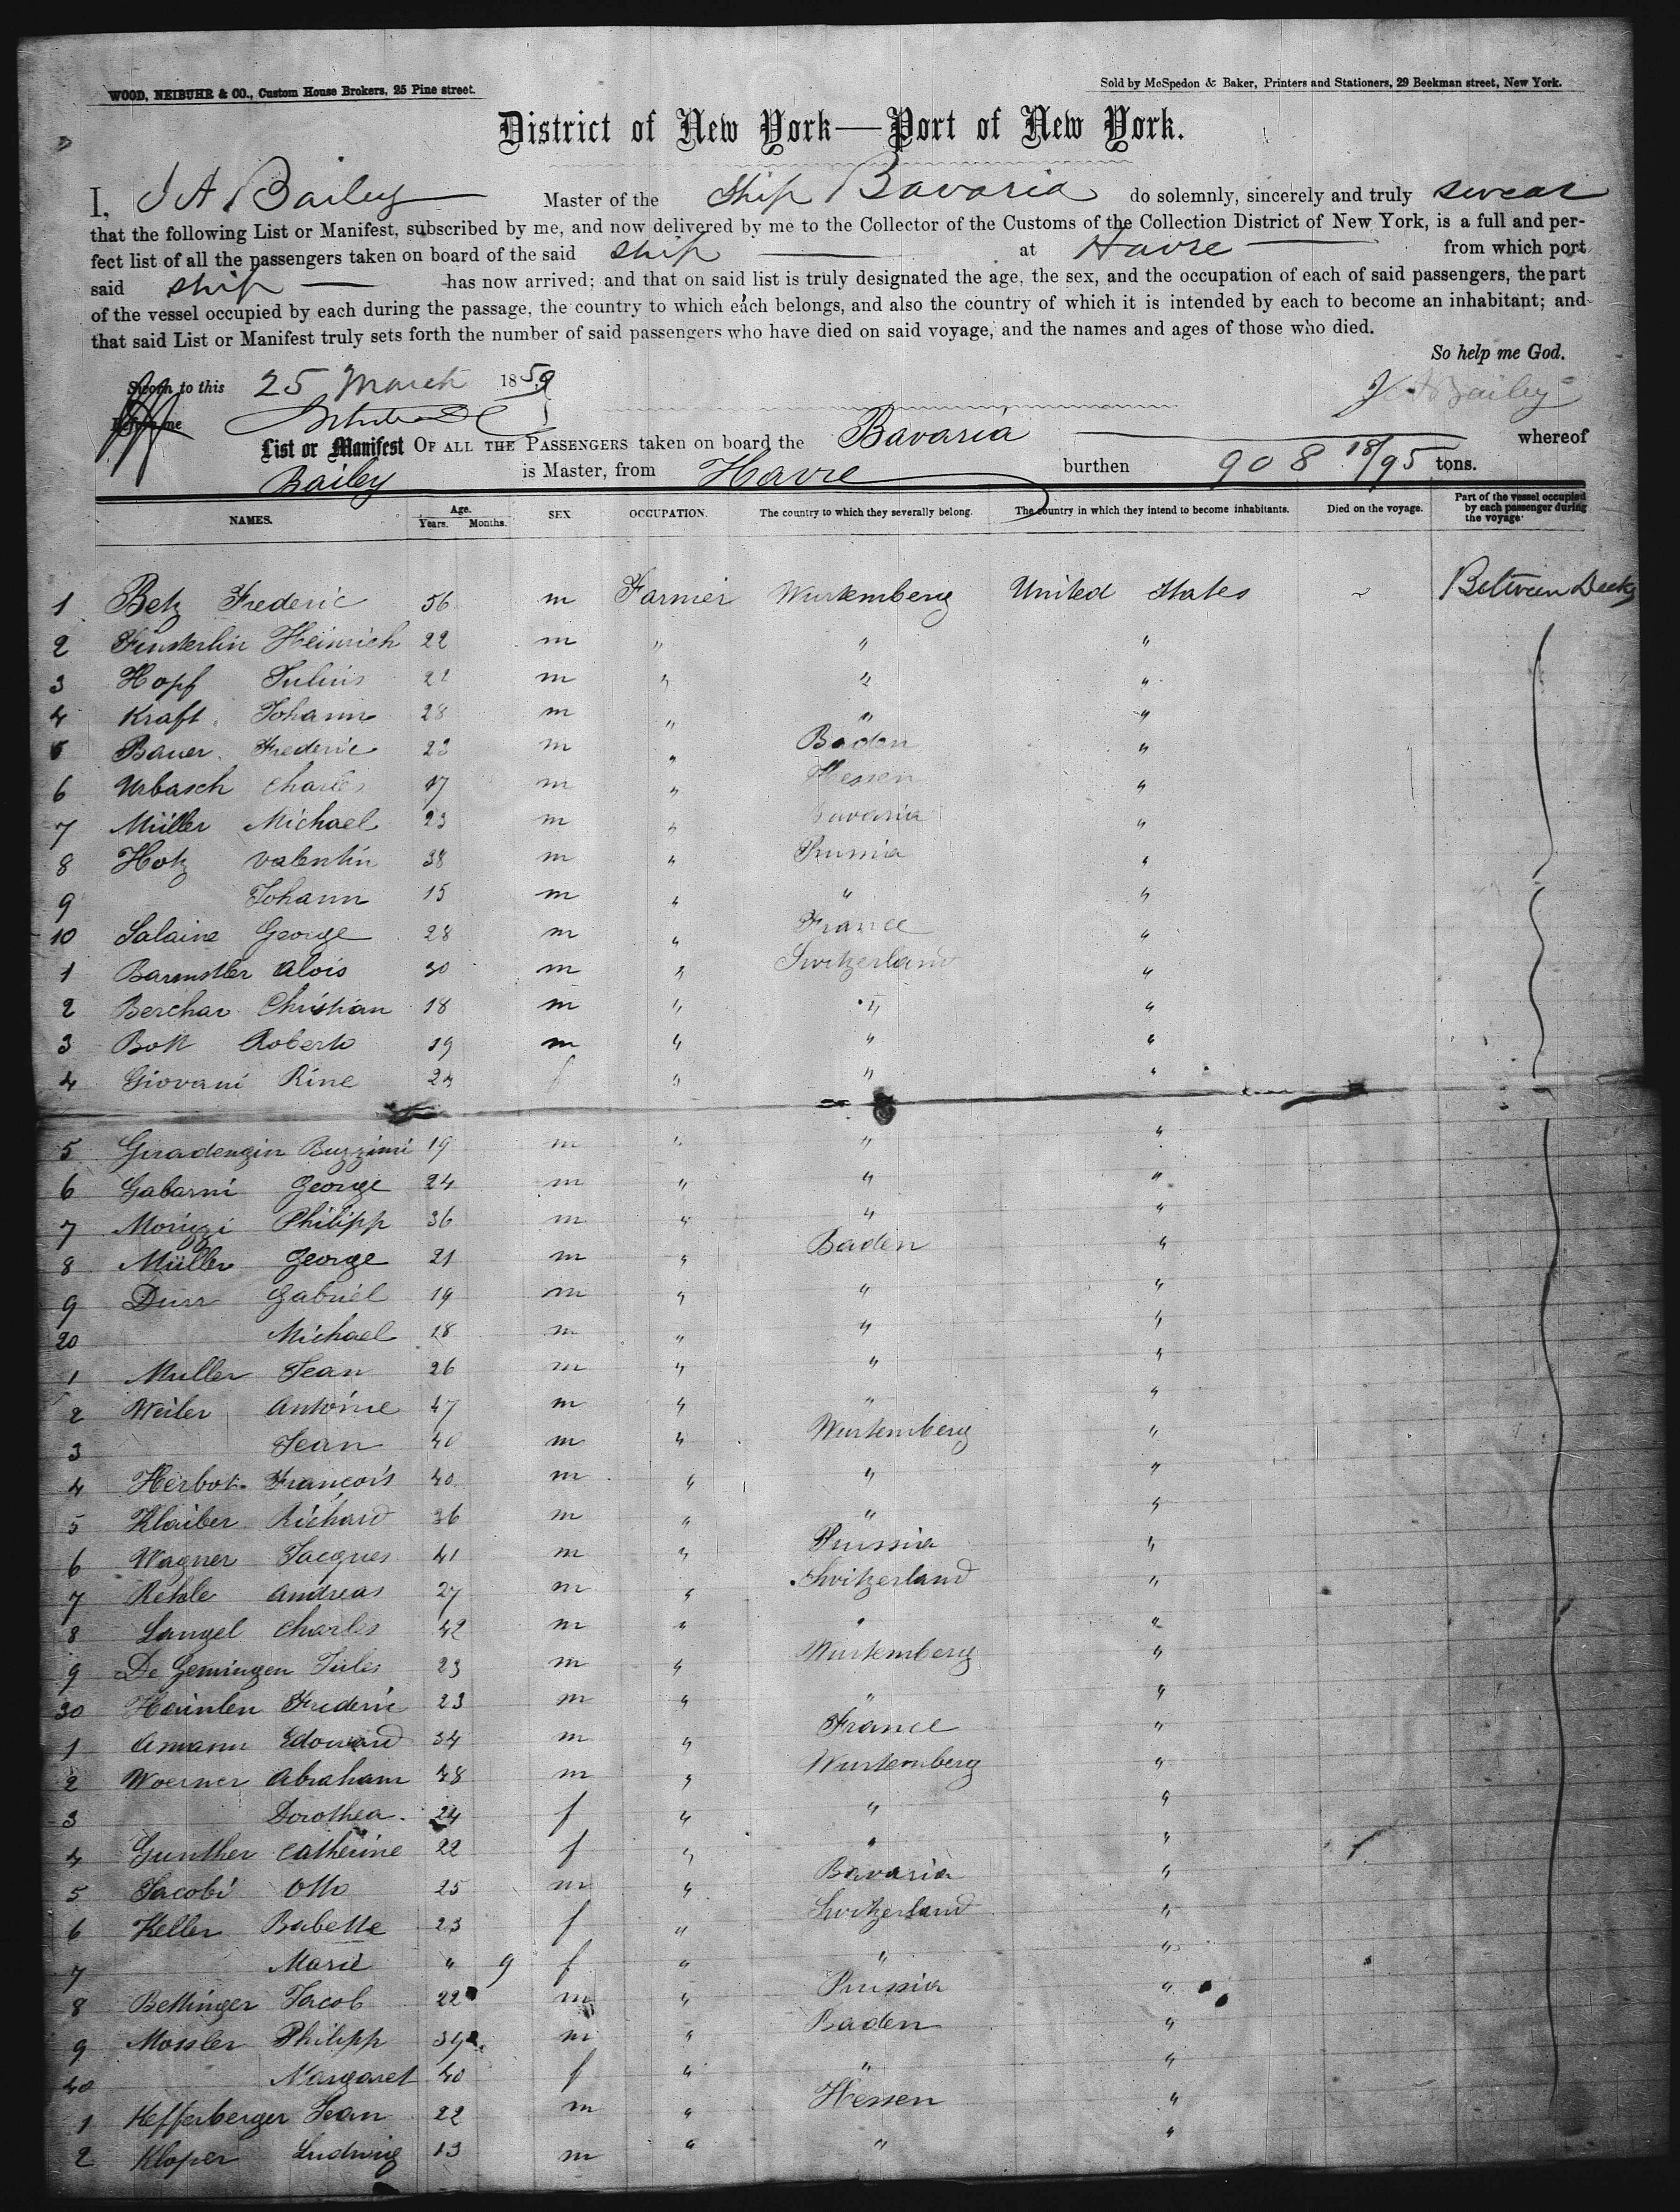 WOOD, NEIBUHR & CO., Custom House Brokers, 25 Pine street.
Sold by McSpedon & Baker, Printers and Stationers, 29 Beekman street, New York.
District of New York—Port of New York.
I, J A Bailey Master of the Ship Bavaria do solemnly, sincerely and truly swear
that the following List or Manifest, subscribed by me, and now delivered by me to the Collector of the Customs of the Collection District of New York, is a full and per-
fect list of all the passengers taken on board of the said ship at Havre from which port
said ship has now arrived; and that on said list is truly designated the age, the sex, and the occupation of each of said passengers, the part
of the vessel occupied by each during the passage, the country to which each belongs, and also the country of which it is intended by each to become an inhabitant; and
that said List or Manifest truly sets forth the number of said passengers who have died on said voyage, and the names and ages of those who died.
So help me God.
Sworn to this 25 March 1859
J A Bailey
Before me
List or Manifest OF ALL THE PASSENGERS taken on board the Bavaria whereof
Bailey is Master, from Havre burthen 908 18/95 tons.
NAMES. Age. Years. Months. SEX OCCUPATION. The country to which they severally belong. The country in which they intend to become inhabitants. Died on the voyage. Part of the vessel occupied by each passenger during the voyage
1 Betz Frederic 56 m Farmer Wurtemberg United States ~ Between Decks
2 Finsterlin Heinrich 22 m " " "
3 Hopf Julius 22 m " " "
4 Kraft Johann 28 m " " "
5 Bauer Frederic 23 m " Baden "
6 Urbasch Charles 17 m " Hessen "
7 Müller Michael 23 m " Bavaria "
8 Hotz Valentin 38 m " Prussia "
9 Johann 15 m " " "
10 Salaine George 28 m " France "
1 Barmstler Alois 30 m " Switzerland "
2 Berchar Christian 18 m " " "
3 Bott Roberto 19 m " " "
4 Giovani Rine 24 f " " "
5 Giradengin Buzzini 19 m " " "
6 Gabarni George 24 m " " "
7 Morizzi Philipp 36 m " " "
8 Müller George 21 m " Baden "
9 Durr Gabriel 19 m " " "
20 Michael 18 m " " "
1 Muller Jean 26 m " " "
2 Weiler Antoine 47 m " " "
3 Jean 40 m " Wurtemberg "
4 Herbot François 40 m " " "
5 Klaiber Richard 36 m " " "
6 Wagner Jacques 41 m " Prussia "
7 Rehle Andreas 27 m " Switzerland "
8 Langel Charles 42 m " " "
9 De Gemingen Jules 23 m " Wurtemberg "
30 Heimlen Frederic 23 m " " "
1 Amann Edouard 34 m " France "
2 Woerner Abraham 48 m " Wurtemberg "
3 Dorothea 24 f " " "
4 Gunther Catherine 22 f " " "
5 Jacobi Otto 25 m " Bavaria "
6 Keller Babette 23 f " Switzerland "
7 Marie " 9 f " " "
8 Bettinger Jacob 22 m " Prussia "
9 Mossler Philipp 39 m " Baden "
40 Margaret 40 f " " "
1 Kefferberger Jean 22 m " Hessen "
2 Kloper Ludwig 13 m " " "